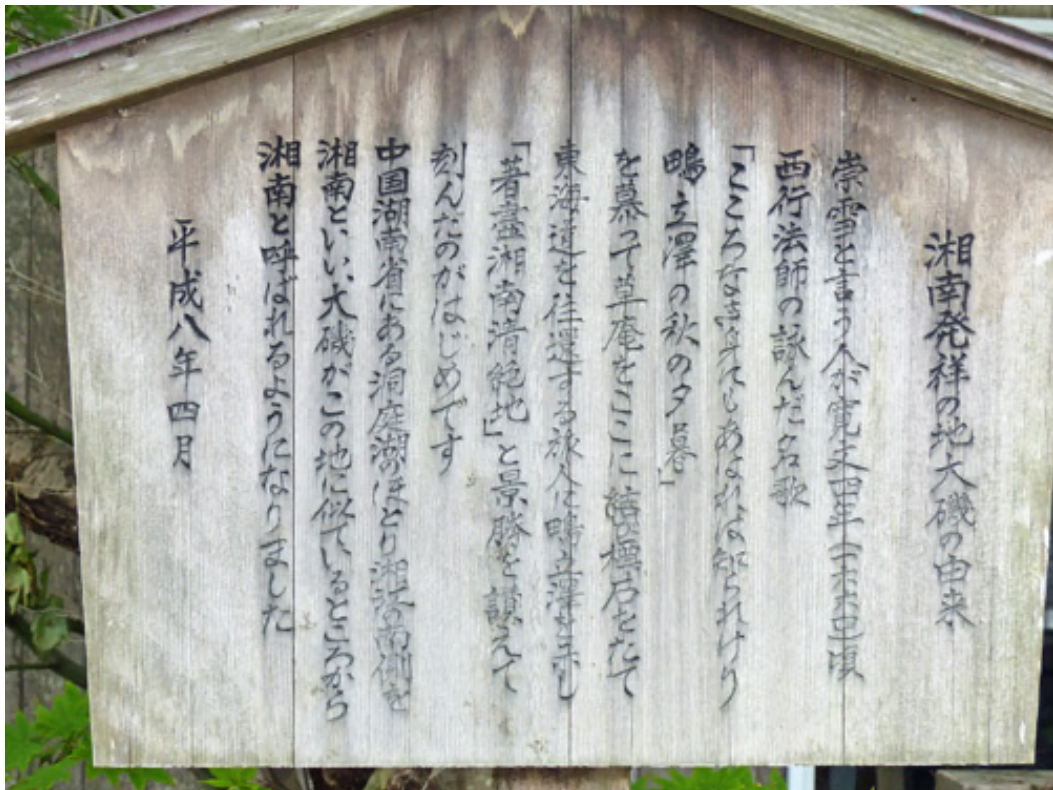 湘南発祥の地大磯の由来
崇雪と言う人が寛文四年（一六六四）頃
西行法師の詠んだ名歌
「こころなき身にもあはれは知られけり
鴫立澤の秋の夕暮」
を慕って草庵をここに結び標石をたて
東海道を往還する旅人に鴫立澤を示し
「著盡湘南清絶地」と景勝を讃えて
刻んだのがはじめです
中国湖南省にある洞庭湖のほとり湘江の南側を
湘南といい、大磯がこの地に似ているところから
湘南と呼ばれるようになりました
平成八年四月